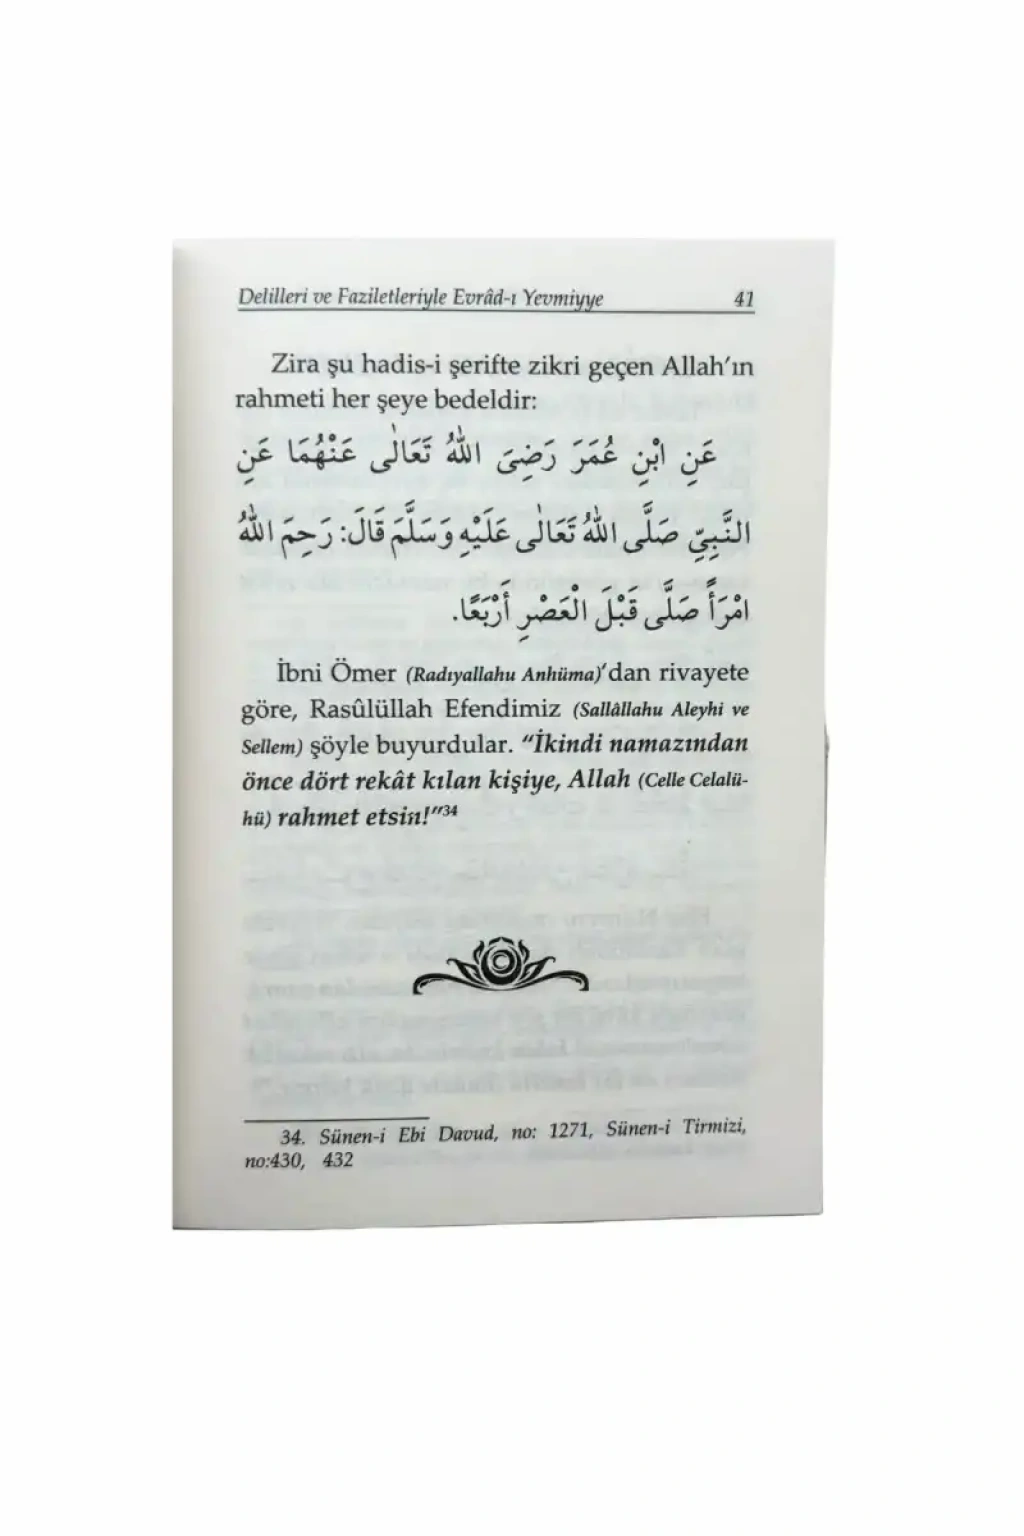 Delilleri ve Faziletleriyle Evrâd-ı Yevmiyye 41
Zira şu hadis-i şerifte zikri geçen Allah'ın
rahmeti her şeye bedeldir:
عَنِ ابْنِ عُمَرَ رَضِيَ اللهُ تَعَالٰى عَنْهُمَا عَنِ
النَّبِيِّ صَلَّى اللهُ تَعَالٰى عَلَيْهِ وَسَلَّمَ قَالَ: رَحِمَ اللهُ
امْرَأً صَلَّى قَبْلَ الْعَصْرِ أَرْبَعًا.
İbni Ömer (Radıyallahu Anhüma)'dan rivayete
göre, Rasûlüllah Efendimiz (Sallâllahu Aleyhi ve
Sellem) şöyle buyurdular. "İkindi namazından
önce dört rekât kılan kişiye, Allah (Celle Celalü-
hü) rahmet etsin!"34
34. Sünen-i Ebi Davud, no: 1271, Sünen-i Tirmizi,
no:430, 432